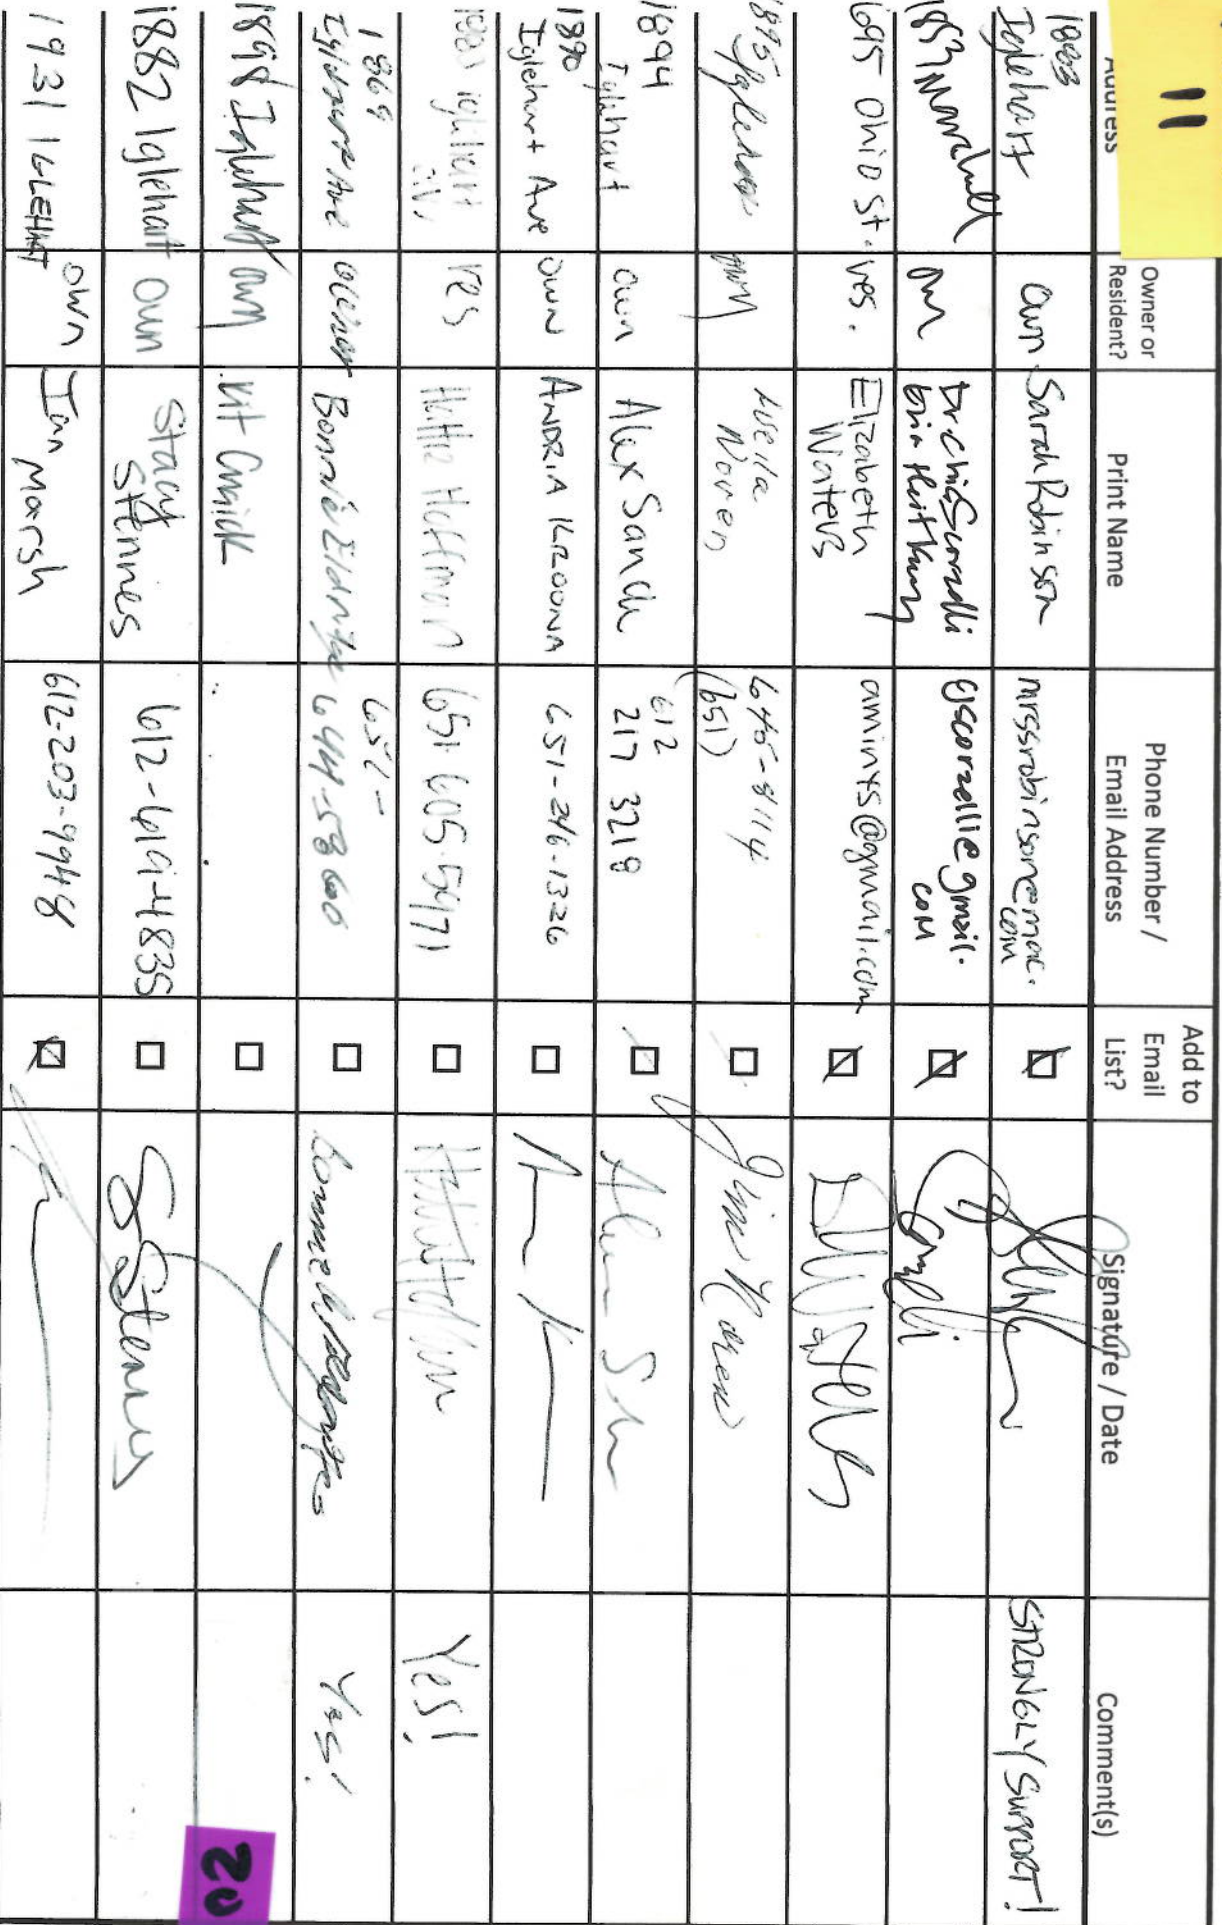 11
Address
Owner or
Resident?
Print Name
Phone Number /
Email Address
Add to
Email
List?
Signature / Date
Comment(s)
1803
Iglehart
own
Sarah Robinson
mrssrobinson@mac.
com
STRONGLY SUPPORT!
1853 Marshall
own
Dr. Chis Scorzelli
cjscorzelli@gmail.
com
695 Ohio St.
res.
Elizabeth
Waters
aminxs@gmail.com
1895
own
Noren
645-8114
(651)
1894
Iglehart
own
Alex Sande
612
217 3218
1890
Iglehart Ave
OWN
ANDRIA KROONA
651-246-1326
iglehart
av.
res
Hattie Hoffman
651 605.5471
Yes!
1869
Iglehart Ave
owner
Bonnie
651-
644-58
Yes!
1898 Iglehart
own
Kit
1882 Iglehart
own
Stacy
Stennes
612-619-4835
S Stennes
1931 IGLEHART
own
Ian
Marsh
612-203-9948
20